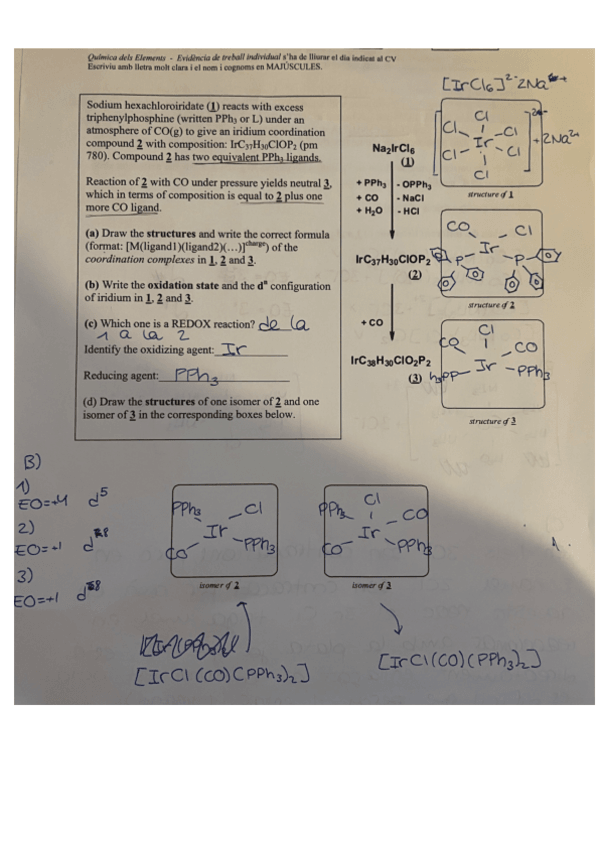 Química dels Elements - Evidència de treball individual s'ha de lliurar el dia indicat al CV
Escriviu amb lletra molt clara i el nom i cognoms en MAJÚSCULES.
[IrCl6]2- 2Na+
Sodium hexachloroiridate (1) reacts with excess
triphenylphosphine (written PPh3 or L) under an
atmosphere of CO(g) to give an iridium coordination
compound 2 with composition: IrC37H30ClOP2 (pm
780). Compound 2 has two equivalent PPh3 ligands.
Reaction of 2 with CO under pressure yields neutral 3,
which in terms of composition is equal to 2 plus one
more CO ligand.
(a) Draw the structures and write the correct formula
(format: [M(ligand1)(ligand2)(…)]charge) of the
coordination complexes in 1, 2 and 3.
(b) Write the oxidation state and the dn configuration
of iridium in 1, 2 and 3.
(c) Which one is a REDOX reaction? de la
1 a la 2
Identify the oxidizing agent: Ir
Reducing agent: PPh3
(d) Draw the structures of one isomer of 2 and one
isomer of 3 in the corresponding boxes below.
Na2IrCl6
(1)
+ PPh3 - OPPh3
+ CO - NaCl
+ H2O - HCl
IrC37H30ClOP2
(2)
+ CO
IrC38H30ClO2P2
(3)
Cl
Cl Cl
Ir
Cl Cl
Cl
2-
+2Na+
structure of 1
CO Cl
Ir
P P
structure of 2
Cl
CO CO
Ir
h3PP PPh3
structure of 3
B)
1)
EO=+4 d5
2)
EO=+1 d8
3)
EO=+1 d8
PPh3 Cl
Ir
CO PPh3
isomer of 2
Cl
PPh3 CO
Ir
CO PPh3
isomer of 3
[IrCl(CO)(PPh3)2]
[IrCl(CO)(PPh3)2]